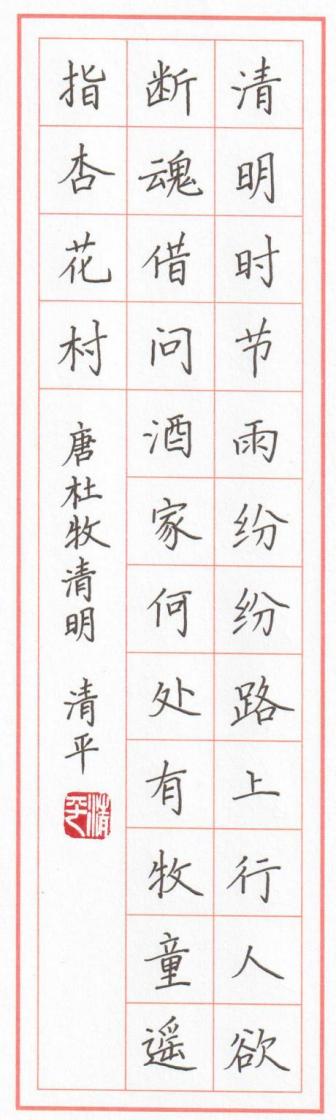 清明时节雨纷纷路上行人欲
断魂借问酒家何处有牧童遥
指杏花村
唐杜牧清明 清平
清平